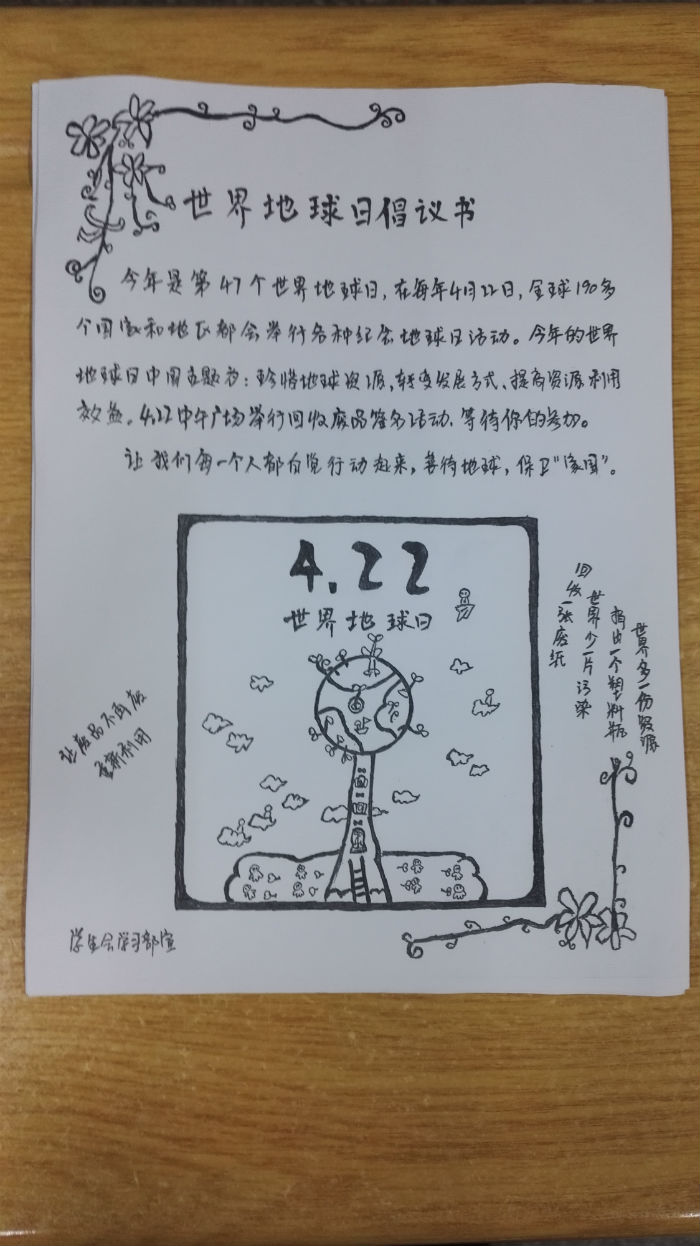 世界地球日倡议书
今年是第47个世界地球日，在每年4月22日，全球190多
个国家和地区都会举行各种纪念地球日活动。今年的世界
地球日中国主题为：珍惜地球资源，转变发展方式、提高资源利用
效益。4.22中午广场举行回收废品签名活动、等待你的参加。
让我们每一个人都自觉行动起来，善待地球，保卫“家园”。
4.22
世界地球日
回收一张废纸
世界少一片污染
捐出一个塑料瓶
世界多一份资源
让废品不再废
重新利用
学生会学习部宣